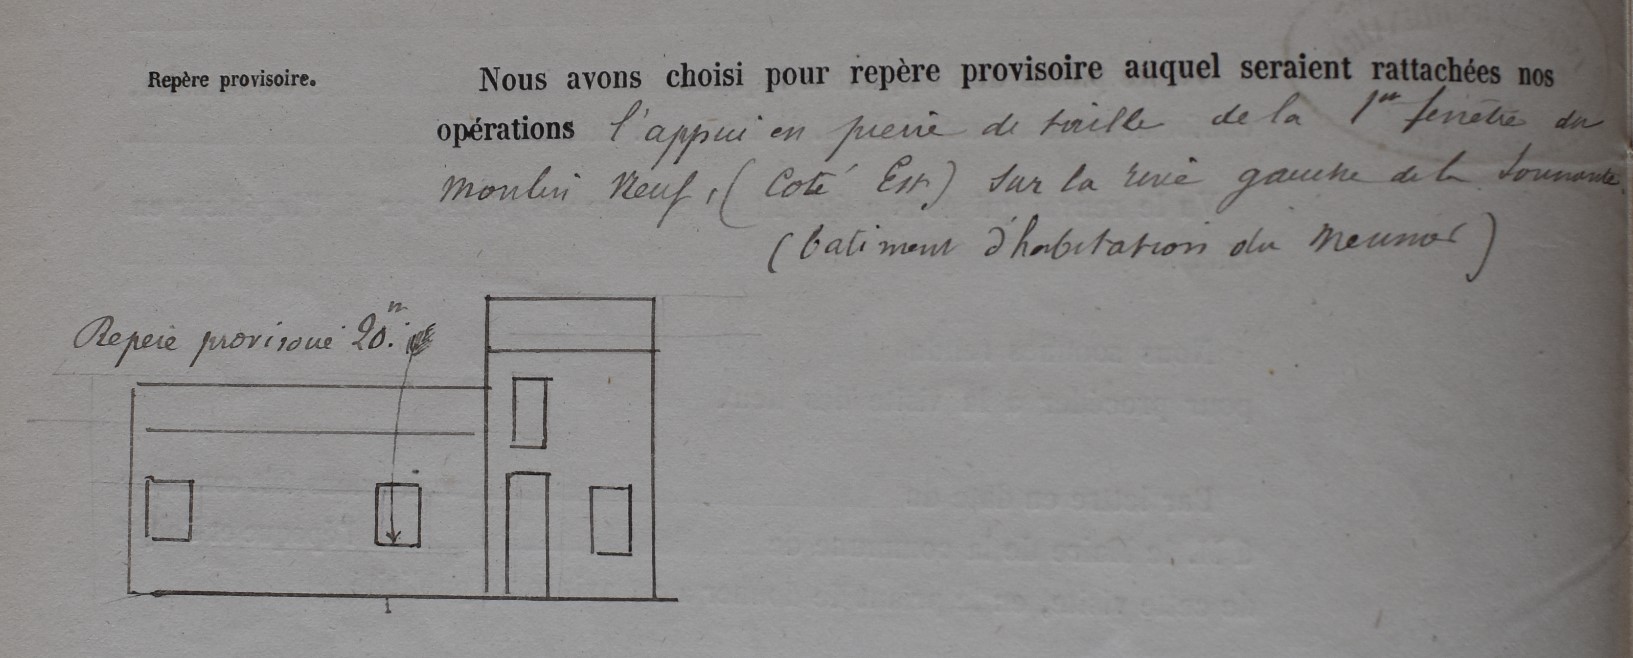 Repère provisoire.
Nous avons choisi pour repère provisoire auquel seraient rattachées nos
opérations l'appui en pierre de taille de la 1re fenêtre du
Moulin Neuf, (Coté Est) sur la rive gauche de la
(batiment d'habitation du Meunier)
Repère provisoire 20.m